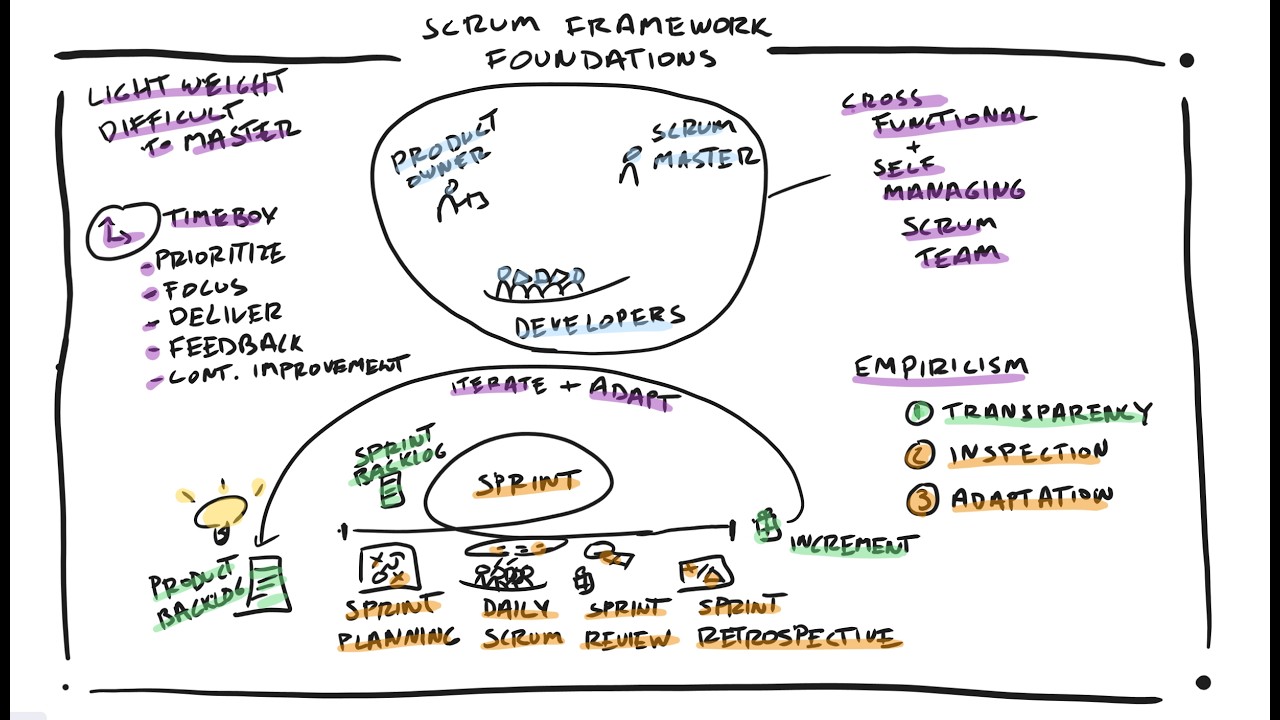 SCRUM FRAMEWORK
FOUNDATIONS
LIGHT WEIGHT
DIFFICULT
TO MASTER
TIMEBOX
- PRIORITIZE
- FOCUS
- DELIVER
- FEEDBACK
- CONT. IMPROVEMENT
PRODUCT
OWNER
SCRUM
MASTER
DEVELOPERS
CROSS
FUNCTIONAL
+
SELF
MANAGING
SCRUM
TEAM
EMPIRICISM
1 TRANSPARENCY
2 INSPECTION
3 ADAPTATION
ITERATE + ADAPT
SPRINT
BACKLOG
SPRINT
INCREMENT
PRODUCT
BACKLOG
SPRINT
PLANNING
DAILY
SCRUM
SPRINT
REVIEW
SPRINT
RETROSPECTIVE